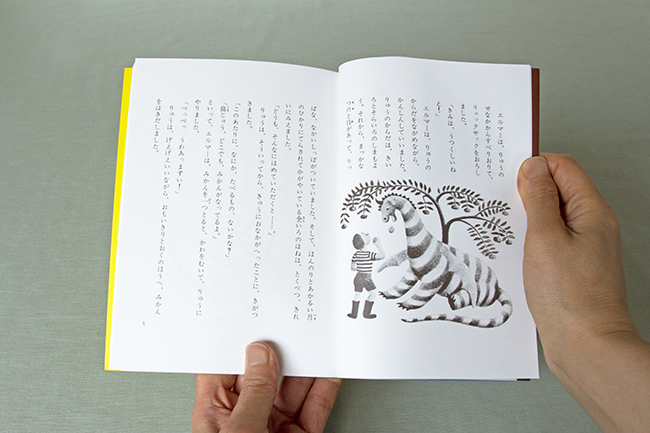 エルマーは、りゅうの
せなかからすべりおりて、
リュックサックをおろし
ました。
「きみは、うつくしいね
え！」
エルマーは、りゅうの
からだをながめながら、
かんしんしていいました。
りゅうのからだは、きい
ろとそらいろのしまもよ
う。それから、まっかな
つのと目があって、りっ
ぱな、ながいしっぽがついていました。そして、ほんのりとあかるい月
のひかりにてらされてかがやいている金いろのはねは、とくべつ、きれ
いにみえました。
「どうも。そんなにほめていただくと……。」
りゅうは、そういってから、きゅうにおなかがへったことに、きがつ
きました。
「このあたりに、なにか、たべるもの、ないかなあ？」
「島じゅう、どこでも、みかんがなってるよ。」
といって、エルマーは、みかんを一つとると、かわをむいて、りゅうに
やりました。
「ぺっぺっ、うわあっまずい！」
りゅうは、げえげえいいながら、おもいきりとおくのほうへ、みかん
をはきだしました。
5